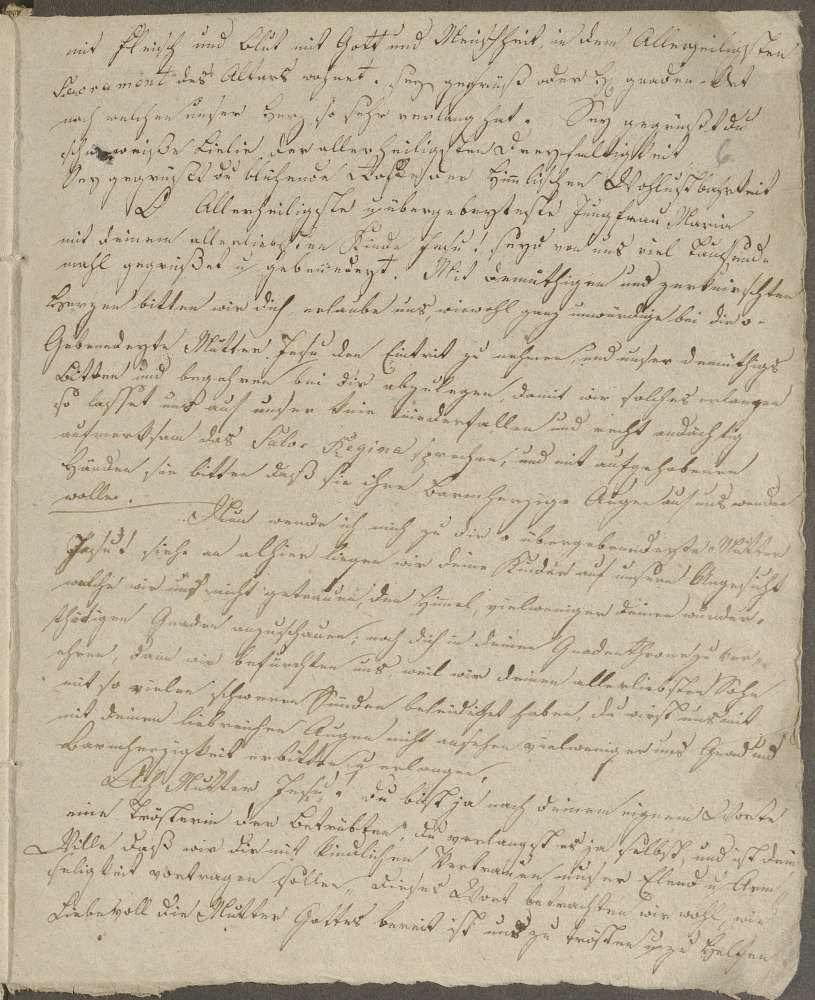 mit Fleisch und Blut mit Gott und Menschheit in dem Allerheiligsten
Sacrament des Altars wohnet. sey gegrüß o der gnaden
nach welchen unser Herz so sehr verlang hat. Sey gegrüßt du
schneeweiße Lielie der allerheiligsten Dreyfaltigkeit
Sey gegrüßt du blühende Rosse der Himlischen Wohllustbarkeit
O Allerheiligste u übergebenedeyteste Jungfrau Maria
mit deinem allerliebsten Kinde Jesu, seyd von uns viel Tausend
mahl gegrüßet u gebenedeyt. Mit demüthigen und zerknirschten
Herzen bitten wir dich erlaube uns wiewohl ganz unwürdige bei dir o
Gebenedeyte Mutter Jesu den Eintrit zu nehmen, und unser demüthigs
Bitten und begehren bei dir abzulegen, damit wir solches erlangen
so lasset uns auf unser knie niederfallen und recht andächtig
aufmerksam das Salve Regina sprechen, und mit aufgehobenen
Händen sie bitten daß sie ihre Barmherzige Augen auf uns wenden
wolle.
Nun wende ich mich zu dir o übergebenedeyte Mutter
Jesu! siehe an alhier liegen wir deine Kinder auf unsern Angesicht
welche wir uns nicht getrauen, den Himel, vielweniger deinen wunder-
thätigen Gnaden anzuschauen; noch dich in deinen Gnadenthrone zu ver-
ehren, dann wir befürchten uns weil wir deinen allerliebsten Sohn
mit so vielen schweren Sünden beleidiget haben, du wirst uns mit
mit deinen liebreichen Augen nicht ansehen vielweniger uns Gnad und
Barmherzigkeit erbitten u erlangen.
Ach Mutter Jesu! du bist ja nach deinem eignem Worte
eine Trösterin der Betrübten, du verlangst es ja selbst, und ist dein
Wille daß wir dir mit kindlichen Vertrauen unser Elend u Arm-
seligkeit vortragen sollen, dieses Wort betrachten wir wohl, wie
Liebevoll die Mutter Gottes bereit ist uns zu trösten u zu Helfen